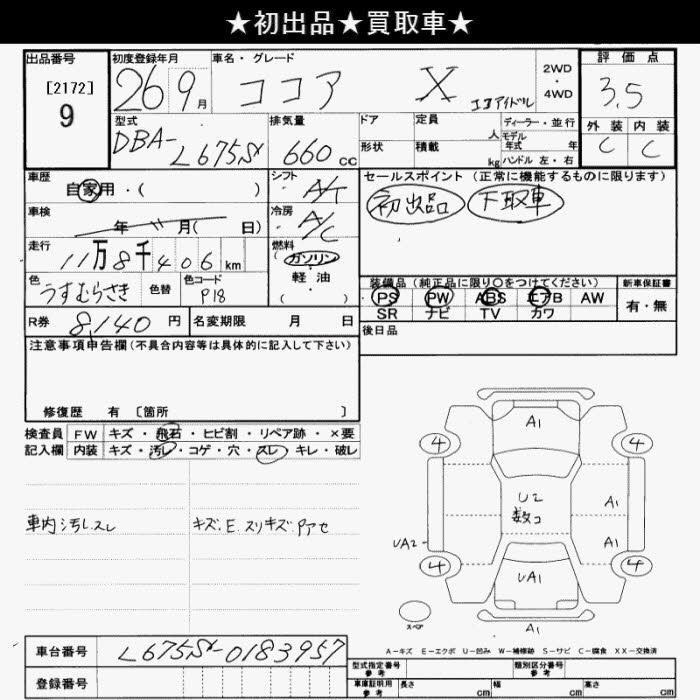 ★初出品★買取車★
出品番号 初度登録年月 車名・グレード 評価点
[2172]
9
26 9月 ココア X ココアイドル 2WD・4WD 3.5
型式 排気量 ドア 定員 人 ディーラー・並行 外装 内装
DBA-L675S 660cc 形状 積載 kg モデル年式 年 ハンドル 左・右 C C
車歴 シフト セールスポイント (正常に機能するものに限ります)
自家用・( ) A/T 初出品 下取車
車検 冷房
年 月( 日) A/C
走行 燃料
11万8千406km ガソリン 軽油 ( )
色 色替 色コード 装備品(純正品に限り○をつけてください) 新車保証書
うすむらさき P18 PS PW ABS エアB AW 有・無
SR ナビ TV カワ
R券 8,140円 名変期限 月 日 後日品
注意事項申告欄(不具合内容等は具体的に記入して下さい)
修復歴 有 〔箇所 〕
検査員 FW キズ・飛石・ヒビ割・リペア跡・×要
記入欄 内装 キズ・汚レ・コゲ・穴・スレ・キレ・破レ
車内汚レスレ キズ.E.スリキズ.Pアセ
A1
4 4
U2
数コ
A1
UA2 A1
4 4
UA1
スペア
A1
A-キズ E-エクボ U-凹み W-補修跡 S-サビ C-腐食 XX-交換済
車台番号 L675S-0183957
登録番号
型式指定番号 参考 類別区分番号 参考
車庫証明用 参考 長さ cm 幅 cm 高さ cm